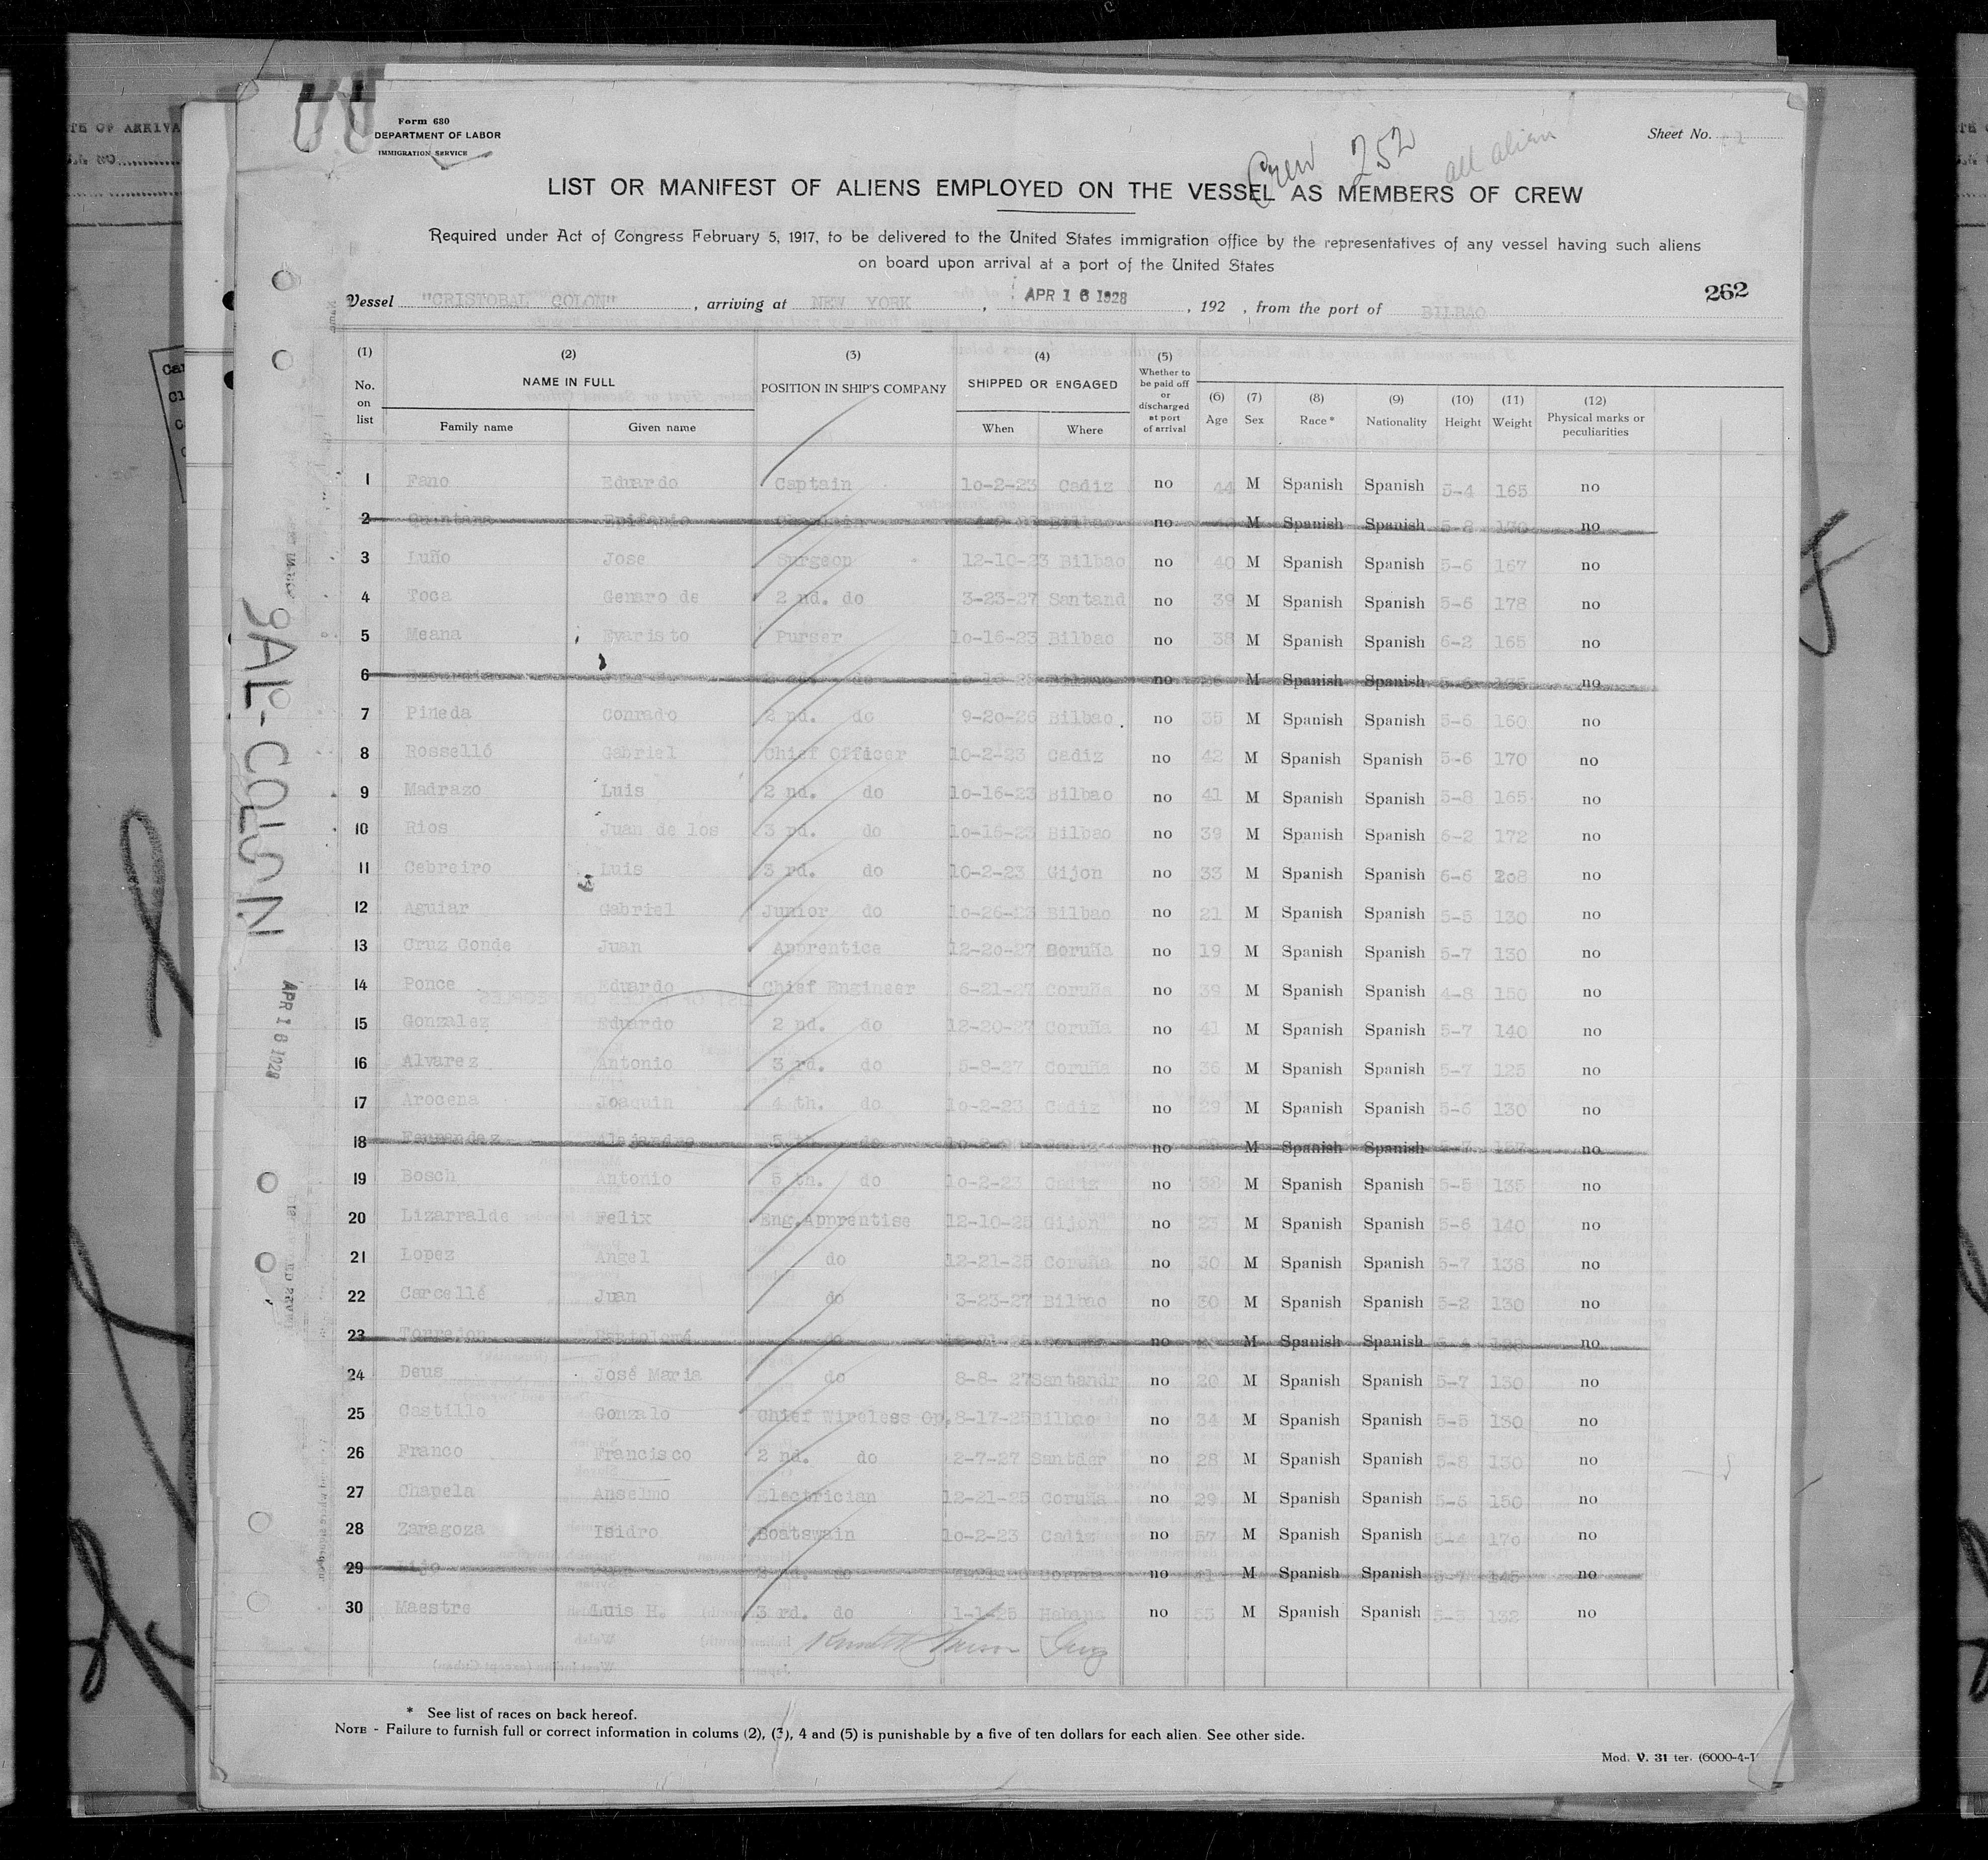 Form 680
DEPARTMENT OF LABOR
IMMIGRATION SERVICE
Crew 252 all alien
Sheet No.
LIST OR MANIFEST OF ALIENS EMPLOYED ON THE VESSEL AS MEMBERS OF CREW
Required under Act of Congress February 5, 1917, to be delivered to the United States immigration office by the representatives of any vessel having such aliens
on board upon arrival at a port of the United States
262
Vessel "CRISTOBAL COLON", arriving at NEW YORK, APR 16 1928, 192 , from the port of BILBAO
(1) No. on list (2) NAME IN FULL Family name Given name (3) POSITION IN SHIP'S COMPANY (4) SHIPPED OR ENGAGED When Where (5) Whether to be paid off or discharged at port of arrival (6) Age (7) Sex (8) Race* (9) Nationality (10) Height (11) Weight (12) Physical marks or peculiarities
1 Fano Eduardo Captain 10-2-23 Cadiz no 44 M Spanish Spanish 5-4 165 no
2 Quintana Epifanio Bilbao no M Spanish Spanish 5-8 170 no
3 Luño Jose Surgeon 12-10-23 Bilbao no 40 M Spanish Spanish 5-6 167 no
4 Toca Genaro de 2 nd. do 3-23-27 Santand no 39 M Spanish Spanish 5-6 178 no
5 Meana Evaristo Purser 10-16-23 Bilbao no 38 M Spanish Spanish 6-2 165 no
6 2 nd. do Bilbao no M Spanish Spanish no
7 Pineda Conrado 2 nd. do 9-20-26 Bilbao. no 35 M Spanish Spanish 5-6 160 no
8 Rosselló Gabriel Chief Officer 10-2-23 Cadiz no 42 M Spanish Spanish 5-6 170 no
9 Madrazo Luis 2 nd. do 10-16-23 Bilbao no 41 M Spanish Spanish 5-8 165 no
10 Rios Juan de los 3 rd. do 10-15-23 Bilbao no 39 M Spanish Spanish 6-2 172 no
11 Cebreiro Luis 3 rd. do 10-2-23 Gijon no 33 M Spanish Spanish 6-6 208 no
12 Aguiar Gabriel Junior do 10-26-23 Bilbao no 21 M Spanish Spanish 5-5 130 no
13 Cruz Conde Juan Apprentice 12-20-27 Coruña no 19 M Spanish Spanish 5-7 130 no
14 Ponce Eduardo Chief Engineer 6-21-27 Coruña no 39 M Spanish Spanish 4-8 150 no
15 Gonzalez Eduardo 2 nd. do 12-20-27 Coruña no 41 M Spanish Spanish 5-7 140 no
16 Alvarez Antonio 3 rd. do 5-8-27 Coruña no 36 M Spanish Spanish 5-7 125 no
17 Arocena Joaquin 4 th. do 10-2-23 Cadiz no 29 M Spanish Spanish 5-6 130 no
18 Fernandez Alejandro do no M Spanish Spanish no
19 Bosch Antonio 5 th. do 10-2-23 Cadiz no 38 M Spanish Spanish 5-5 135 no
20 Lizarralde Felix Eng.Apprentise 12-10-25 Gijon no 23 M Spanish Spanish 5-6 140 no
21 Lopez Angel do 12-21-25 Coruña no 30 M Spanish Spanish 5-7 138 no
22 Carcellé Juan do 3-23-27 Bilbao no 30 M Spanish Spanish 5-2 130 no
23 Bartolomé do no M Spanish Spanish no
24 Deus José Maria do 8-8- 27 Santandr no 20 M Spanish Spanish 5-7 130 no
25 Castillo Gonzalo Chief Wireless Op. 8-17-25 Bilbao no 34 M Spanish Spanish 5-5 130 no
26 Franco Francisco 2 nd. do 2-7-27 Santder no 28 M Spanish Spanish 5-8 130 no
27 Chapela Anselmo Electrician 12-21-25 Coruña no 29 M Spanish Spanish 5-5 150 no
28 Zaragoza Isidro Boatswain 10-2-23 Cadiz no 57 M Spanish Spanish 5-4 170 no
29 Lijo Juan 2 nd. do no 41 M Spanish Spanish 5-7 145 no
30 Maestre Luis H. 3 rd. do 1-1-25 Habana no 55 M Spanish Spanish 132 no
* See list of races on back hereof.
NOTE - Failure to furnish full or correct information in colums (2), (3), 4 and (5) is punishable by a five of ten dollars for each alien. See other side.
Mod. V. 31 ter. (6000-4-1
APR 16 1928